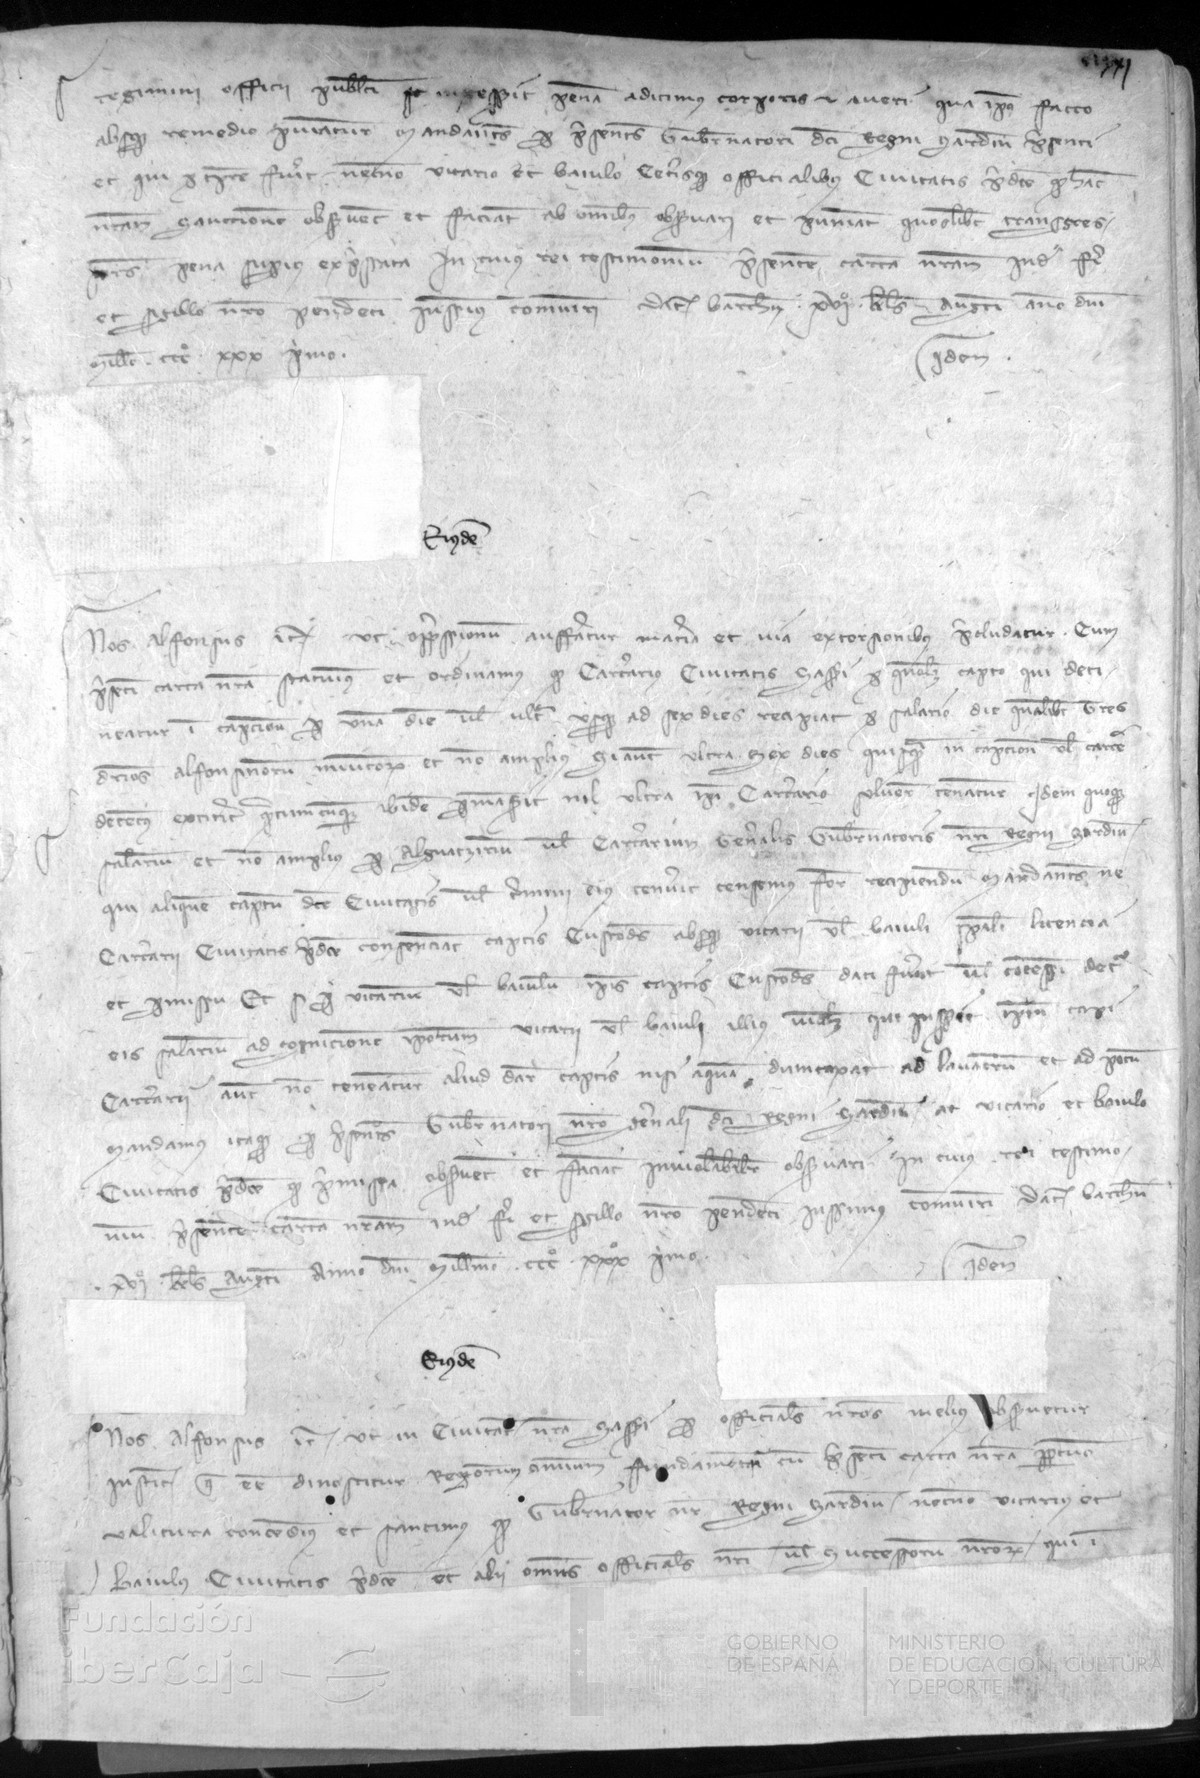 regiminis officii publici se ingesserit penam adicimus corporis et averi qua ipso facto
absque remedio puniatur Mandantes per presentes Gubernatori dicti Regni Sardinie presenti
et qui pro tempore fuerit necnon vicario et baiulo Ceterisque officialibus Civitatis predicte quod hanc
nostram sanccionem observent et faciant ab omnibus observari et puniant quoslibet transgres-
sores pena superius expressata In cuius rei testimonium presentem cartam nostram inde fieri
et sigillo nostro pendenti iussimus comuniri Dat. barchn. xvii kls Augusti anno domini
Mill. ccc xxx primo.
Idem.
Eiusdem
Nos Alfonsus etc. ut oppressionum auferatur materia et via extorsionibus precludatur Cum
presenti carta nostra statuimus et ordinamus quod Carcerarius Civitatis Sasseri pro quolibet capto qui deti-
neatur in captione per unam diem vel ultra usque ad sex dies recipiat pro salario die qualibet tres
denarios alfonsinorum minutorum et non amplius Si autem ultra sex dies quisquam in captione vel carcere
detentus extiterit quantumcunque ibidem permanserit nil ultra ipsi Carcerario solvere teneatur Idem quoque
salarium et non amplius per Alguatzirium vel Carcerarium Generalis Gubernatoris nostri Regni Sardinie
qui aliquem captum dicte Civitatis vel termini eius tenuerit censemus fore recipiendum Mandantes ne
Carcerarii Civitatis predicte consenciant captis Custodes absque vicarii vel baiuli speciali licencia
et permissu Et si per vicarium vel baiulum ipsis captis Custodes dati fuerint vel concessi detur
eis salarium ad cognicionem ipsorum vicarii vel baiuli illius videlicet qui iusserit ipsum capi
Carcerarii autem non teneatur aliud dare captis nisi aquam dumtaxat ad lavandum et ad potum
Mandamus itaque per presentes Gubernatori nostro generali dicti Regni Sardinie ac vicario et baiulo
Civitatis predicte quod premissa observent et faciant inviolabiliter observari In cuius rei testimo-
nium presentem cartam nostram inde fieri et sigillo nostro pendenti iussimus comuniri Dat. barchn.
xvii kls Augusti Anno domini Millesimo ccc xxx primo.
Idem
Eiusdem
Nos Alfonsus etc. ut in Civitate nostra Sasseri per officiales nostros melius observetur
iusticia que esse dinoscitur Regnorum omnium fundamentum cum presenti carta nostra perpetuo
valitura concedimus et sancimus quod Gubernator noster Regni Sardinie necnon vicarius et
baiulus Civitatis predicte et alii omnes officiales nostri vel Successorum nostrorum qui in
Fundación
iberCaja
GOBIERNO
DE ESPAÑA
MINISTERIO
DE EDUCACIÓN, CULTURA
Y DEPORTE